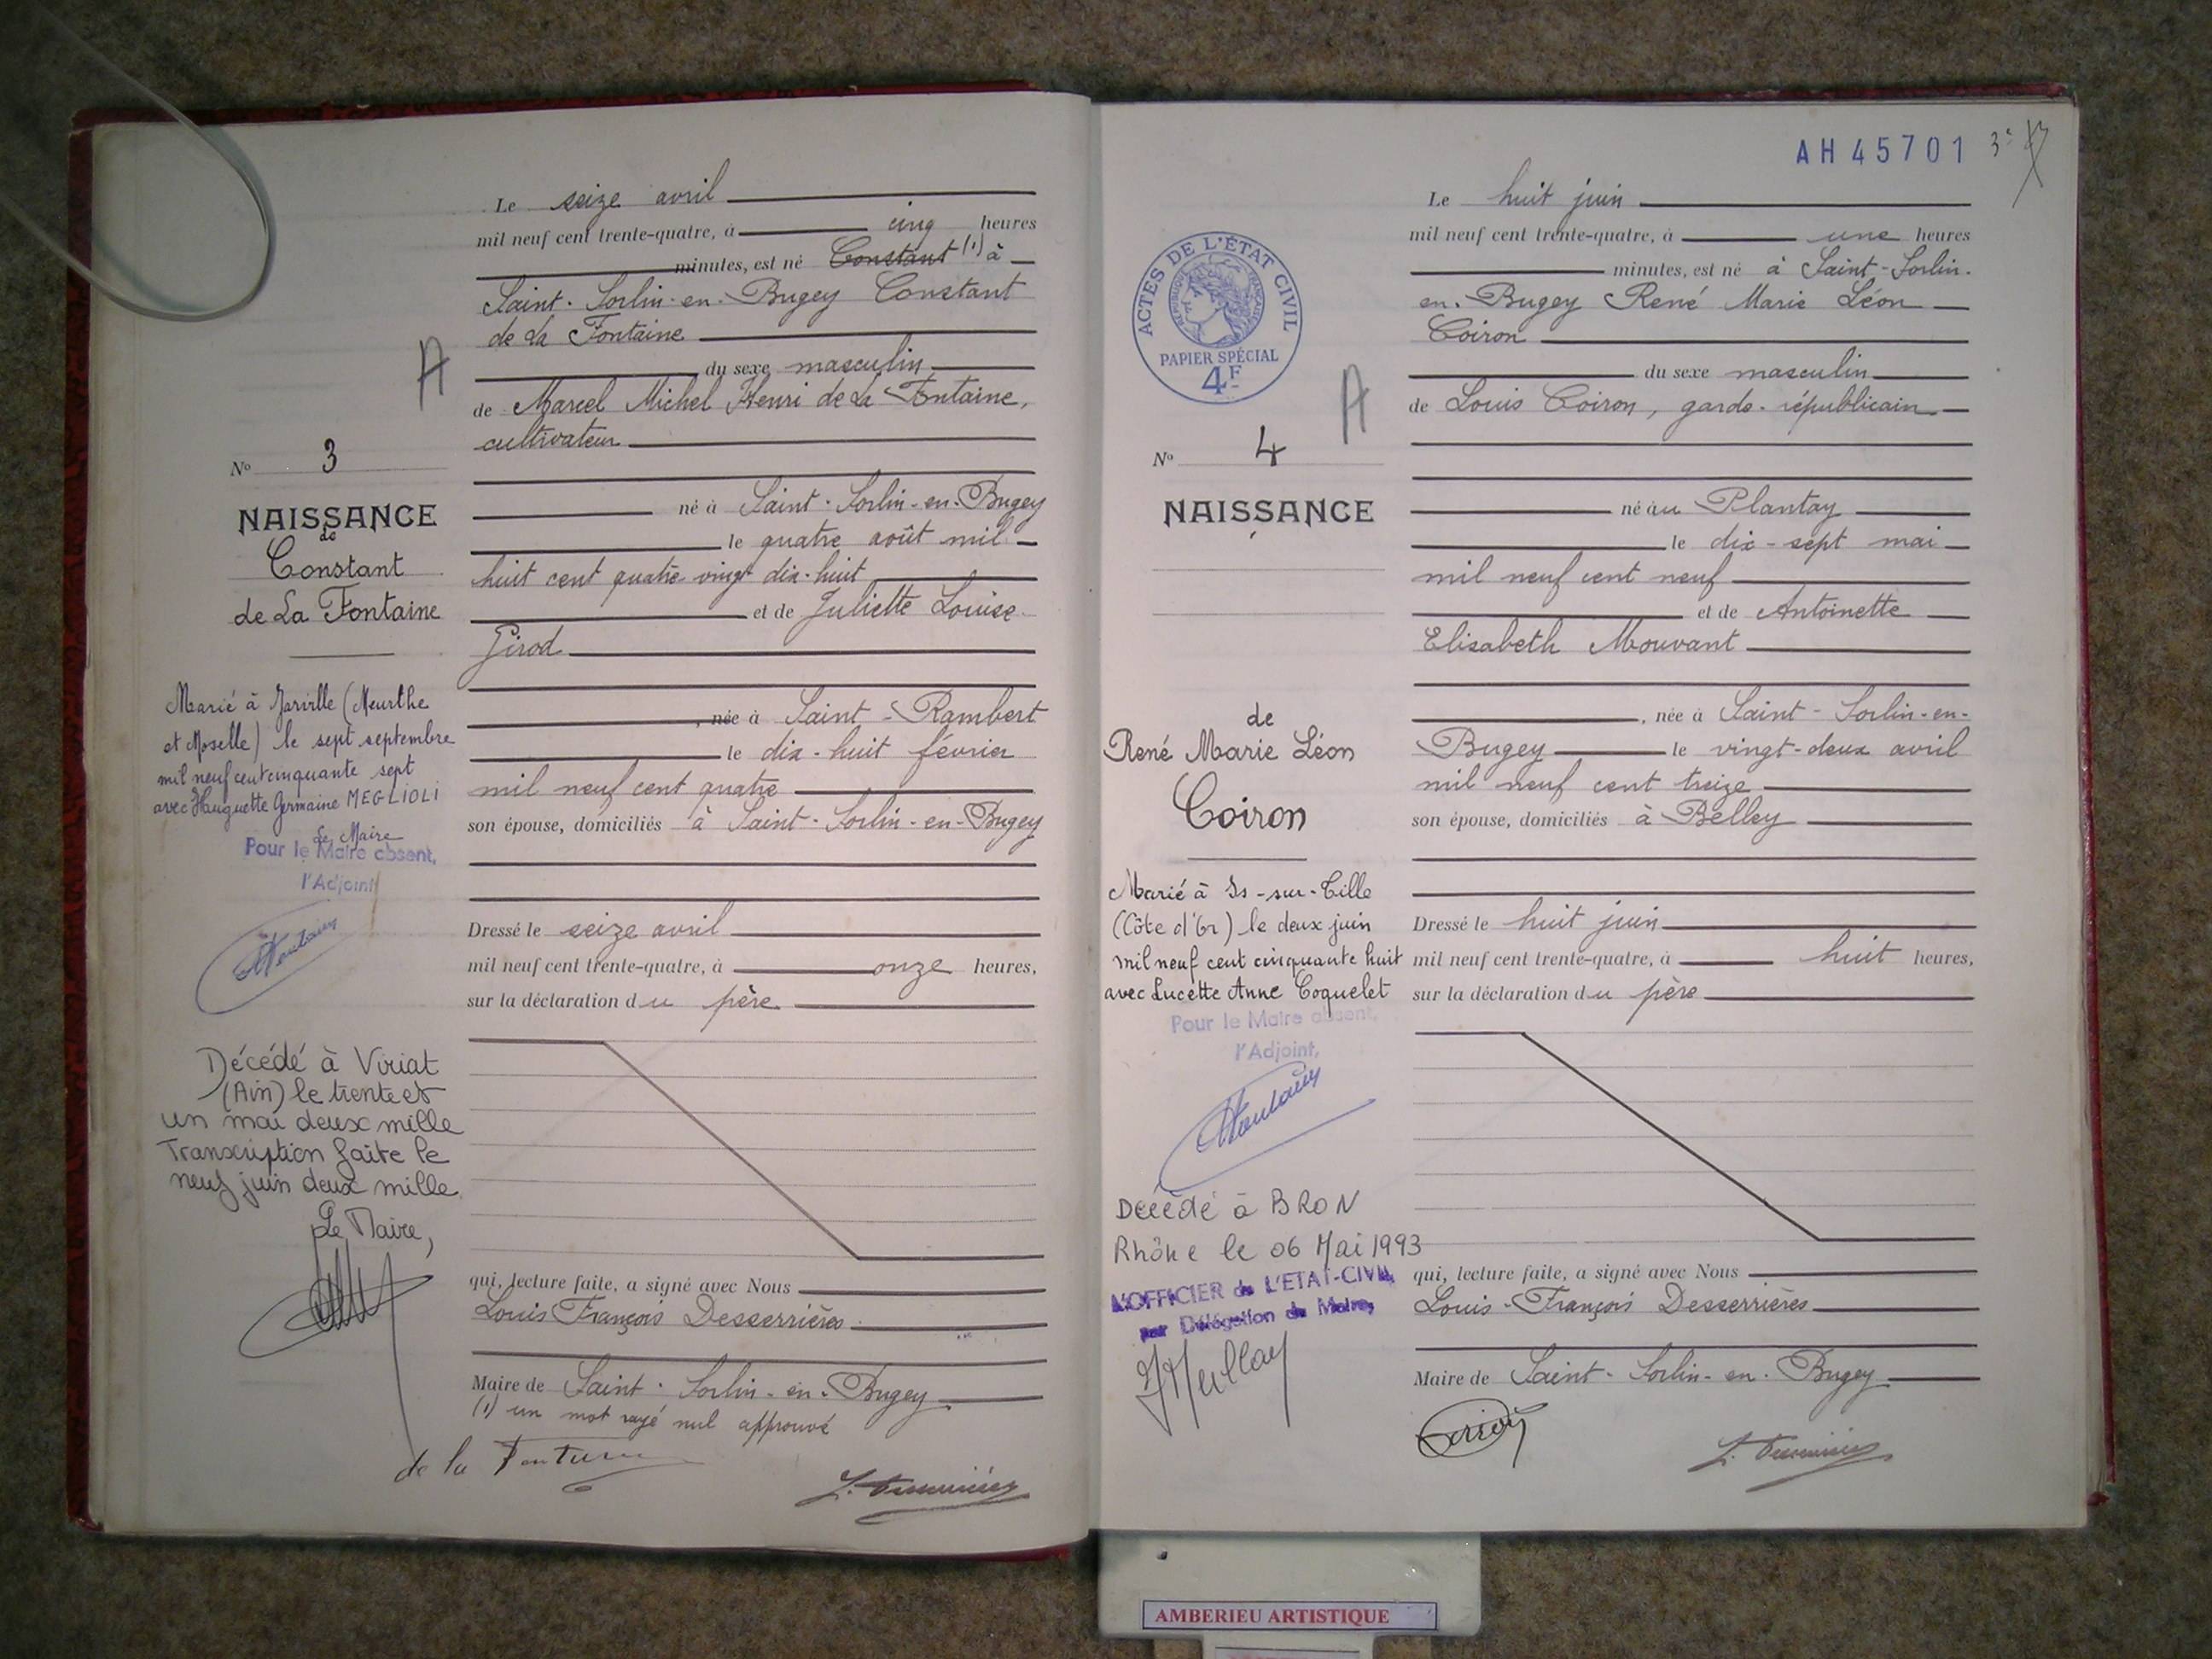 Le seize avril
mil neuf cent trente-quatre, à cinq heures
minutes, est né Constant (1) à
Saint-Sorlin-en-Bugey Constant
de La Fontaine
du sexe masculin
de Marcel Michel Henri de La Fontaine,
cultivateur
né à Saint-Sorlin-en-Bugey
le quatre août mil
huit cent quatre vingt dix-huit
et de Juliette Louise
Girod
, née à Saint-Rambert
le dix-huit février
mil neuf cent quatre
son épouse, domiciliés à Saint-Sorlin-en-Bugey
Dressé le seize avril
mil neuf cent trente-quatre, à onze heures,
sur la déclaration du père
qui, lecture faite, a signé avec Nous
Louis François Desserrières
Maire de Saint-Sorlin-en-Bugey
(1) un mot rayé nul approuvé
de la Fontaine
L. Desserrières
A
No 3
NAISSANCE
de
Constant
de La Fontaine
Marié à Jarville (Meurthe
et Moselle) le sept septembre
mil neuf cent cinquante sept
avec Huguette Germaine MEGLIOLI
Le Maire
Pour le Maire absent,
l'Adjoint
Décédé à Viriat
(Ain) le trente et
un mai deux mille
Transcription faite le
neuf juin deux mille
Le Maire,
AH 45701
ACTES DE L'ÉTAT CIVIL
RÉPUBLIQUE FRANÇAISE
PAPIER SPÉCIAL
4F
A
No 4
NAISSANCE
de
René Marie Léon
Coiron
Marié à Is-sur-Tille
(Côte d'Or) le deux juin
mil neuf cent cinquante huit
avec Lucette Anne Coquelet
Pour le Maire absent,
l'Adjoint,
Décédé à BRON
Rhône le 06 Mai 1993
L'OFFICIER de L'ETAT-CIVIL
par Délégation du Maire,
Le huit juin
mil neuf cent trente-quatre, à une heures
minutes, est né à Saint-Sorlin-
en-Bugey René Marie Léon
Coiron
du sexe masculin
de Louis Coiron, garde-républicain
né au Plantay
le dix-sept mai
mil neuf cent neuf
et de Antoinette
Elisabeth Mouvant
, née à Saint-Sorlin-en-
Bugey le vingt-deux avril
mil neuf cent treize
son épouse, domiciliés à Belley
Dressé le huit juin
mil neuf cent trente-quatre, à huit heures,
sur la déclaration du père
qui, lecture faite, a signé avec Nous
Louis-François Desserrières
Maire de Saint-Sorlin-en-Bugey
Coiron
L. Desserrières
AMBERIEU ARTISTIQUE